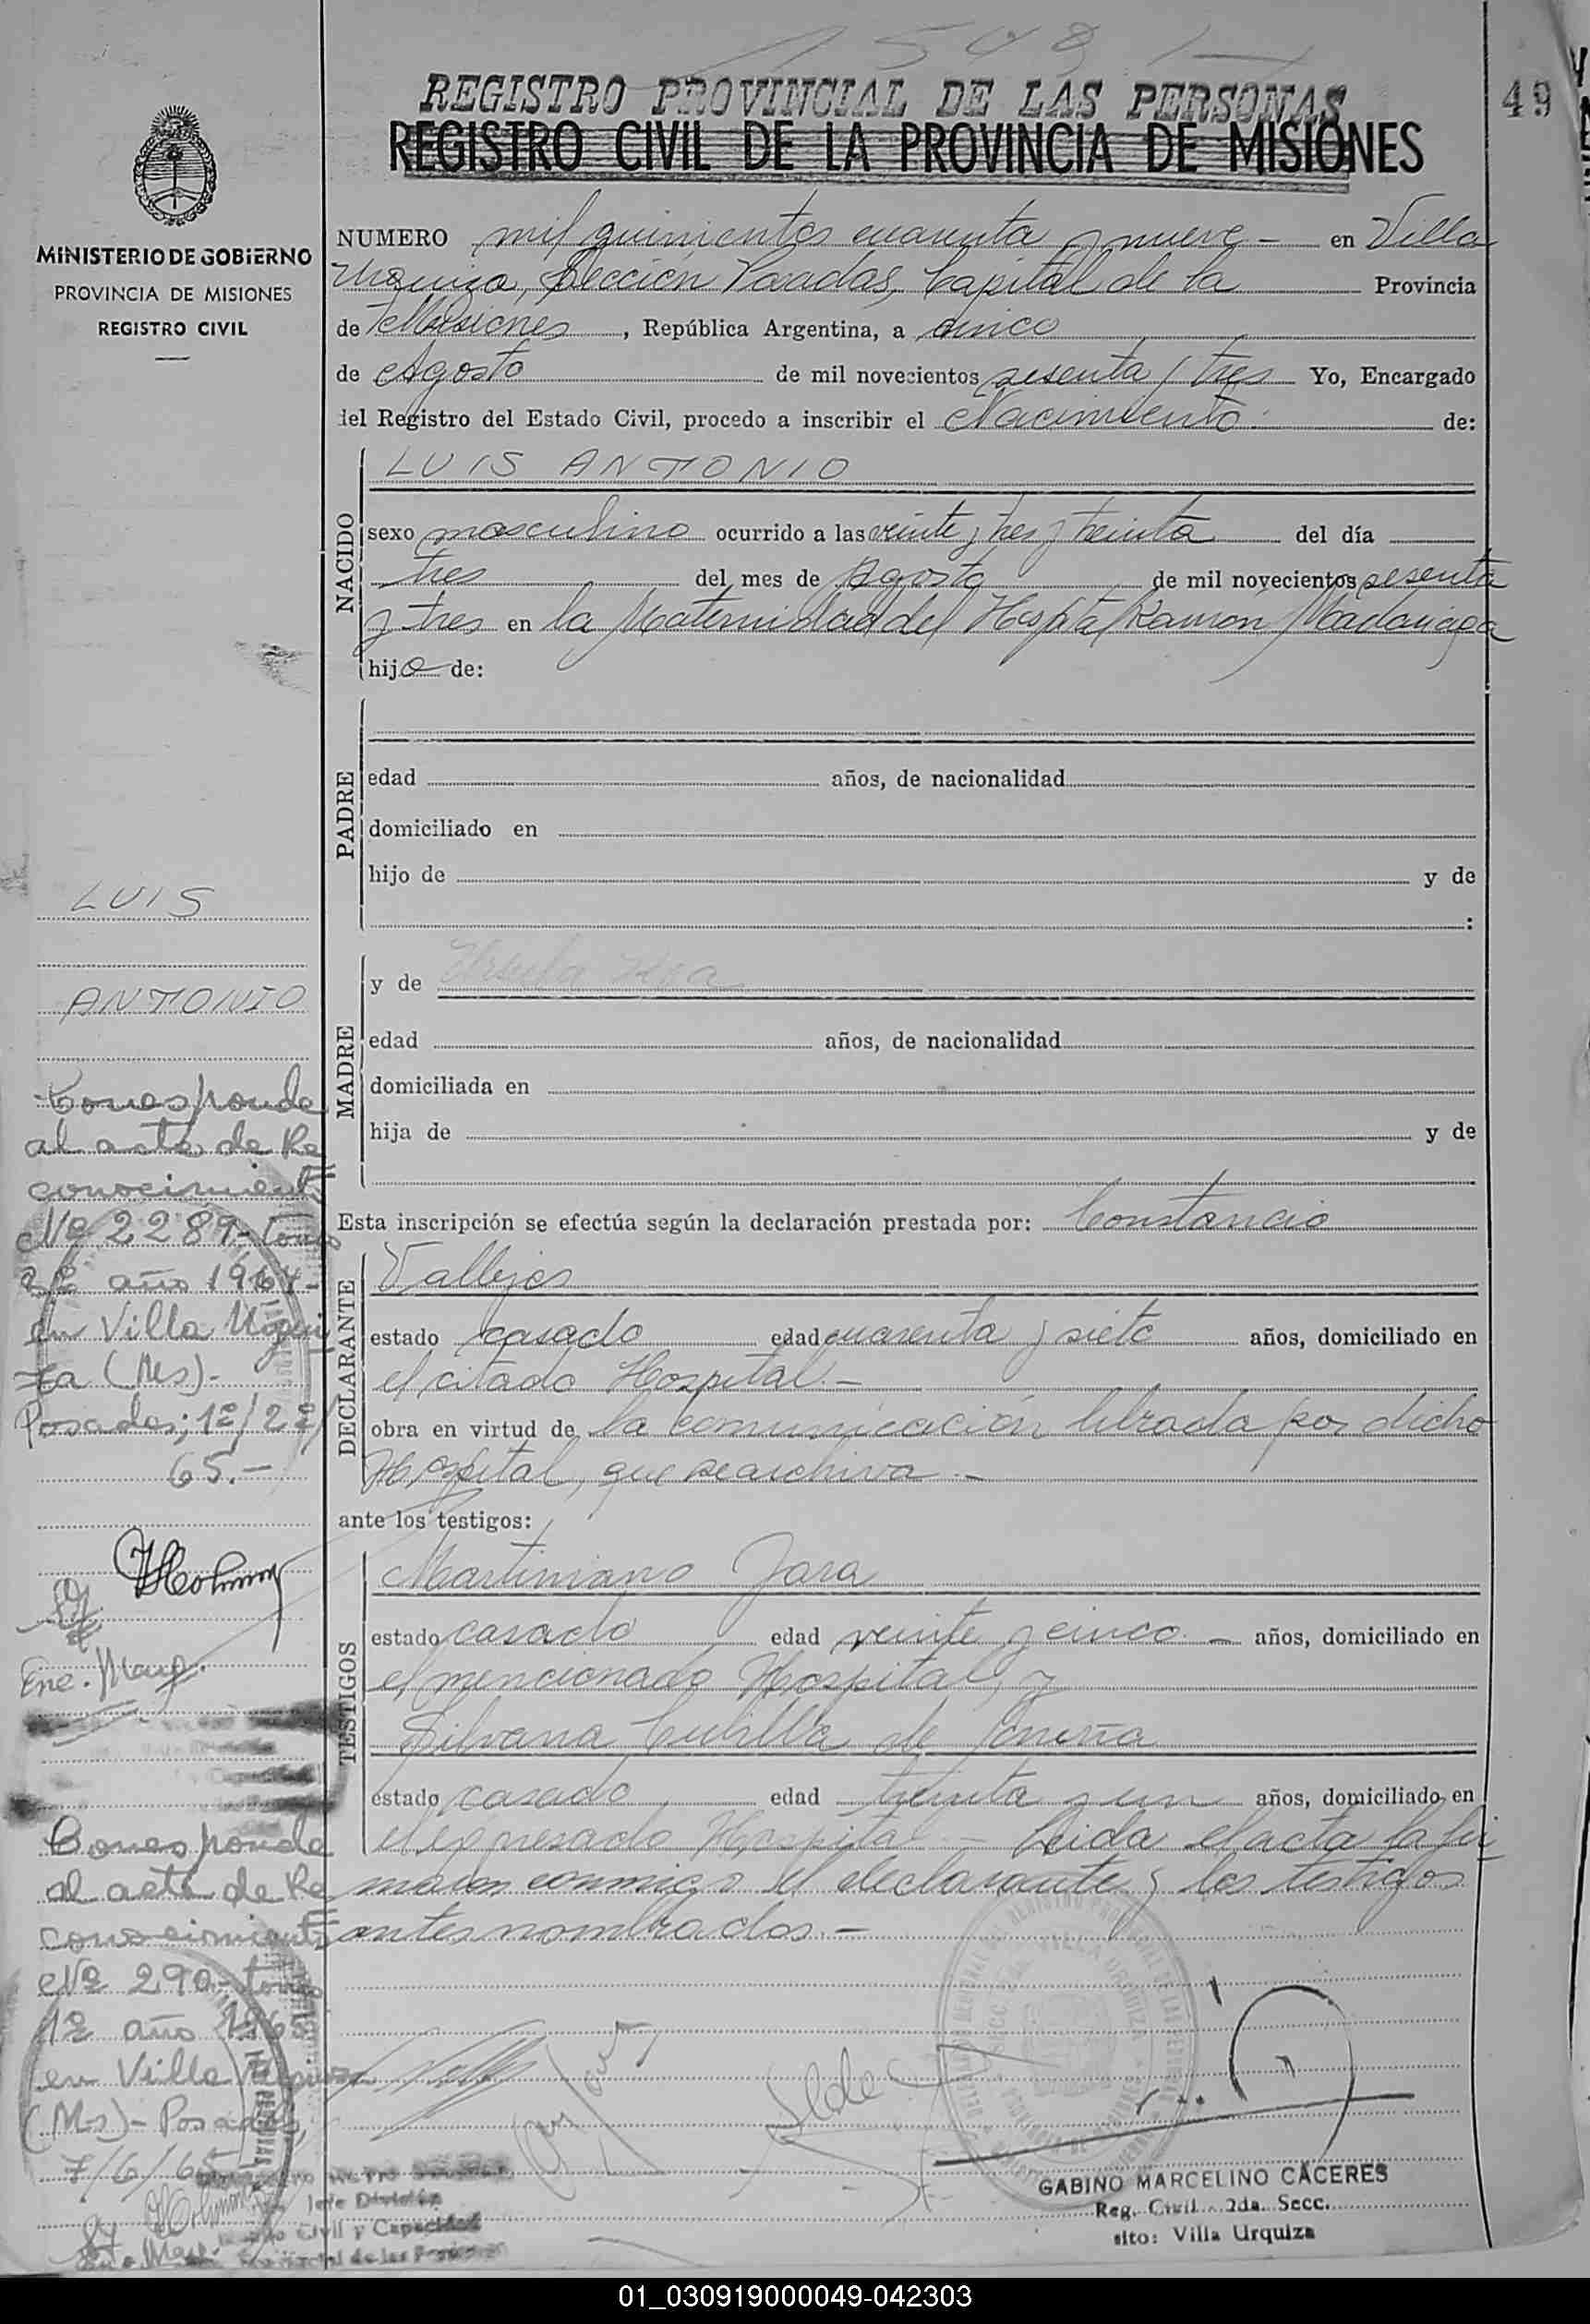 1548
REGISTRO PROVINCIAL DE LAS PERSONAS
REGISTRO CIVIL DE LA PROVINCIA DE MISIONES
49
MINISTERIO DE GOBIERNO
PROVINCIA DE MISIONES
REGISTRO CIVIL
NUMERO mil quinientos cuarenta y nueve - en Villa
Urquiza, Sección Posadas, Capital de la Provincia
de Misiones, República Argentina, a cinco
de Agosto de mil novecientos sesenta y tres Yo, Encargado
del Registro del Estado Civil, procedo a inscribir el Nacimiento: de:
NACIDO
LUIS ANTONIO
sexo masculino ocurrido a las veinte y tres y treinta del día
tres del mes de Agosto de mil novecientos sesenta
y tres en la Maternidad del Hospital Ramón Madariaga
hijo de:
PADRE
edad años, de nacionalidad
domiciliado en
hijo de y de
:
MADRE
y de Ursula
edad años, de nacionalidad
domiciliada en
hija de y de
Esta inscripción se efectúa según la declaración prestada por: Constancio
DECLARANTE
Vallejos
estado casado edad cuarenta y siete años, domiciliado en
el citado Hospital.-
obra en virtud de la comunicación librada por dicho
Hospital, que se archiva.-
ante los testigos:
TESTIGOS
Martiniano Jara
estado casado edad veinte y cinco - años, domiciliado en
el mencionado Hospital, y
Silvana Cubilla de
estado casado edad treinta y un años, domiciliado en
el expresado Hospital - Leida el acta la fir
maron conmigo el declarante y los testigos
antes nombrados.-
LUIS
ANTONIO
Corresponde
al acta de Re
conocimiento
Nº 2289- tomo
año 1964-
en Villa Urqui
za (Ms)-
Posadas; 1º/2º/
65.-
Corresponde
al acta de Re
conocimiento
Nº 290- tomo
1º año 1965
en Villa Urquiza
(Ms)- Posadas,
7/6/65
Jefe División
Civil y Capacidad
GABINO MARCELINO CACERES
Reg. Civil - 2da. Secc.
sito: Villa Urquiza
01_030919000049-042303